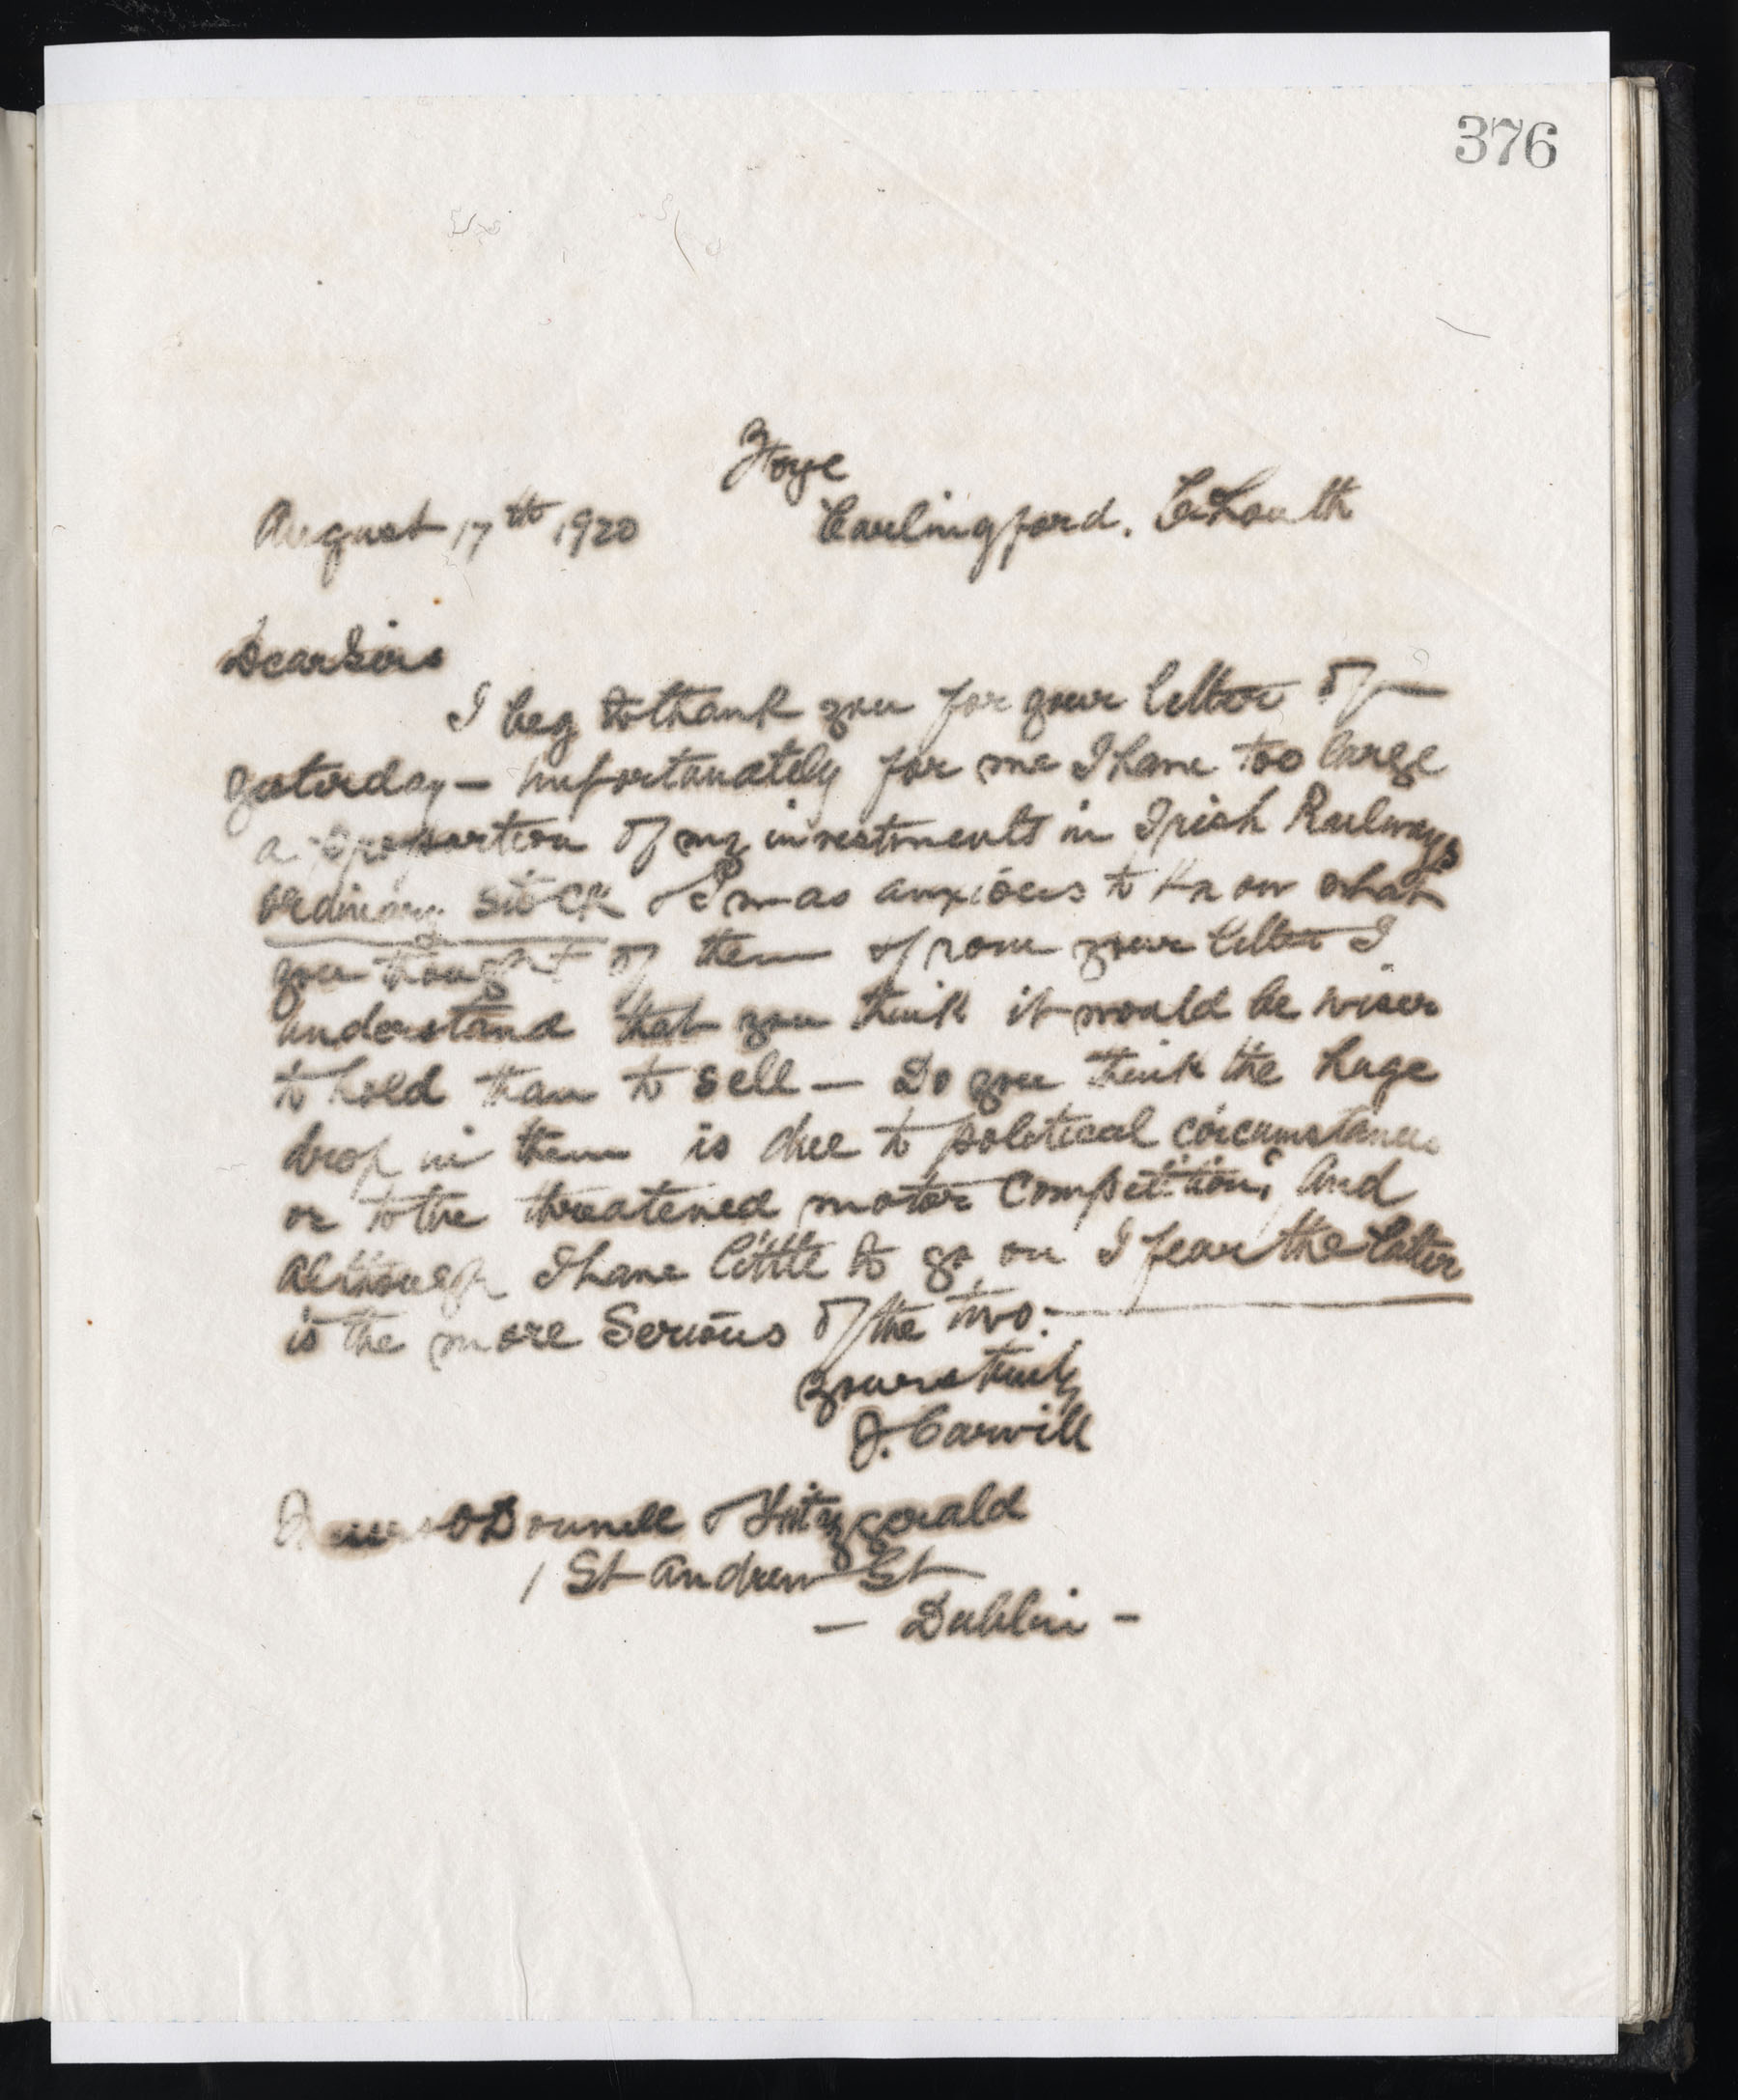 376
August 17th 1920 Carlingford. Co Louth
Dear Sirs
I beg to thank you for your letter of
yesterday — unfortunately for me I have too large
a proportion of my investments in Irish Railways
ordinary stock & I was anxious to know what
you thought of them & from your letter I
understand that you think it would be wiser
to hold than to sell — Do you think the huge
drop in them is due to political circumstances
or to the threatened motor competition, and
although I have little to go on I fear the latter
is the more serious of the two. —
Yours truly
J. Carvill
Messrs O'Donnell & Fitzgerald
1 St Andrew St
— Dublin —